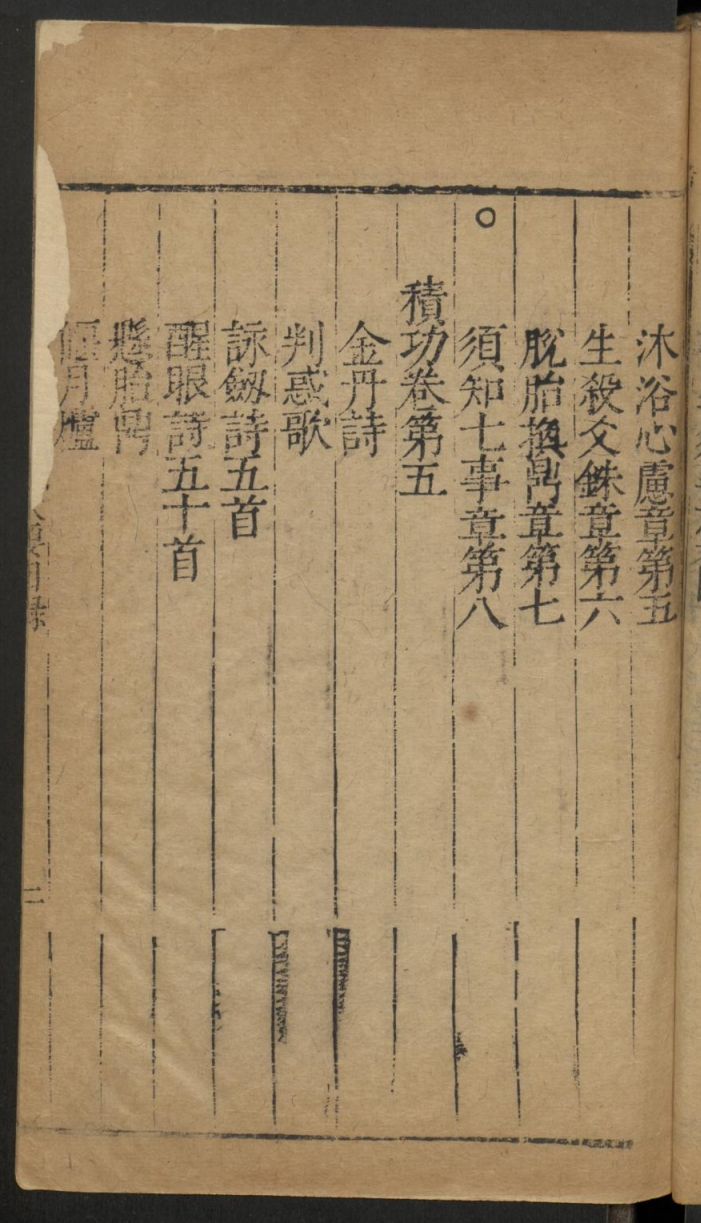 沐浴心慮章第五
生殺爻銖章第六
脫胎換鼎章第七
○
須知七事章第八
積功卷第五
金丹詩
判惑歌
詠劔詩五首
醒眼詩五十首
懸胎鼎
偃月爐
目録
二